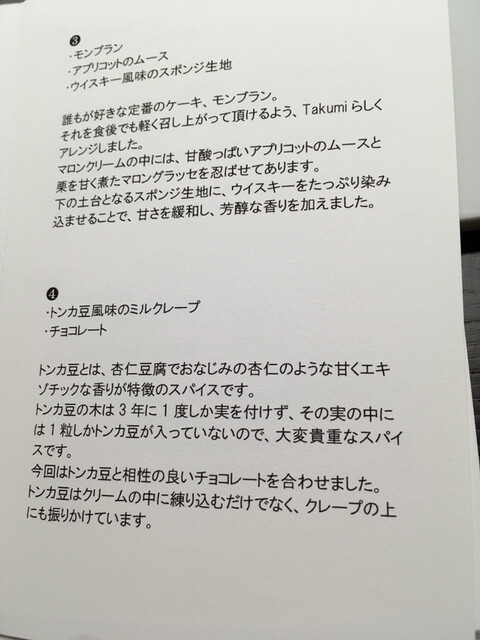 ❸
・モンブラン
・アプリコットのムース
・ウイスキー風味のスポンジ生地
誰もが好きな定番のケーキ、モンブラン。
それを食後でも軽く召し上がって頂けるよう、Takumiらしく
アレンジしました。
マロンクリームの中には、甘酸っぱいアプリコットのムースと
栗を甘く煮たマロングラッセを忍ばせてあります。
下の土台となるスポンジ生地に、ウイスキーをたっぷり染み
込ませることで、甘さを緩和し、芳醇な香りを加えました。
❹
・トンカ豆風味のミルクレープ
・チョコレート
トンカ豆とは、杏仁豆腐でおなじみの杏仁のような甘くエキ
ゾチックな香りが特徴のスパイスです。
トンカ豆の木は3年に1度しか実を付けず、その実の中に
は1粒しかトンカ豆が入っていないので、大変貴重なスパイ
スです。
今回はトンカ豆と相性の良いチョコレートを合わせました。
トンカ豆はクリームの中に練り込むだけでなく、クレープの上
にも振りかけています。